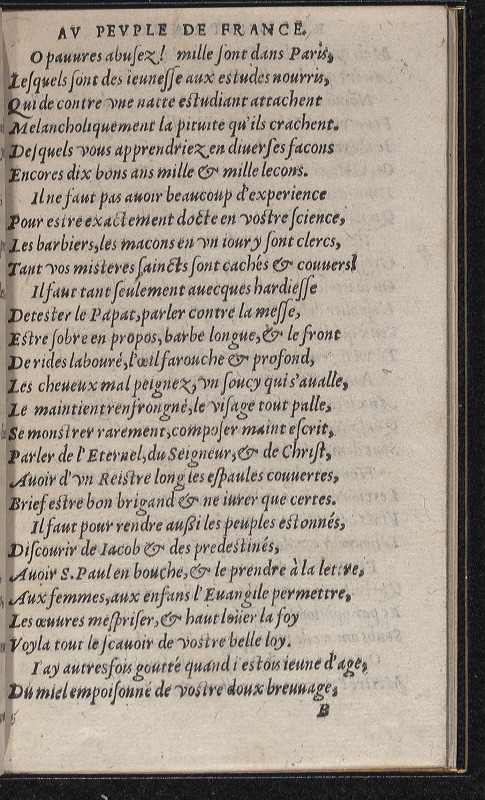 AV PEVPLE DE FRANCE.
O pauures abusez! mille sont dans Paris,
Lesquels sont des ieunesse aux estudes nourris,
Qui de contre vne natte estudiant attachent
Melancholiquement la pituite qu'ils crachent.
Desquels vous apprendriez en diuerses facons
Encores dix bons ans mille & mille lecons.
Il ne faut pas auoir beaucoup d'experience
Pour estre exactement docte en vostre science,
Les barbiers, les macons en vn iour y sont clercs,
Tant vos misteres saincts sont cachés & couuers!
Il faut tant seulement auecques hardiesse
Detester le Papat, parler contre la messe,
Estre sobre en propos, barbe longue, & le front
De rides labouré, l'œil farouche & profond,
Les cheueux mal peignez, vn soucy qui s'aualle,
Le maintient renfrongné, le visage tout palle,
Se monstrer rarement, composer maint escrit,
Parler de l'Eternel, du Seigneur, & de Christ,
Auoir d'vn Reistre long les espaules couuertes,
Brief estre bon brigand & ne iurer que certes.
Il faut pour rendre außi les peuples estonnés,
Discourir de Iacob & des predestinés,
Auoir S. Paul en bouche, & le prendre à la lettre,
Aux femmes, aux enfans l'Euangile permettre,
Les œuures mespriser, & haut loüer la foy
Voyla tout le scauoir de vostre belle loy.
I'ay autresfois goutté quand i'estois ieune d'age,
Du miel empoisonné de vostre doux breuuage,
B